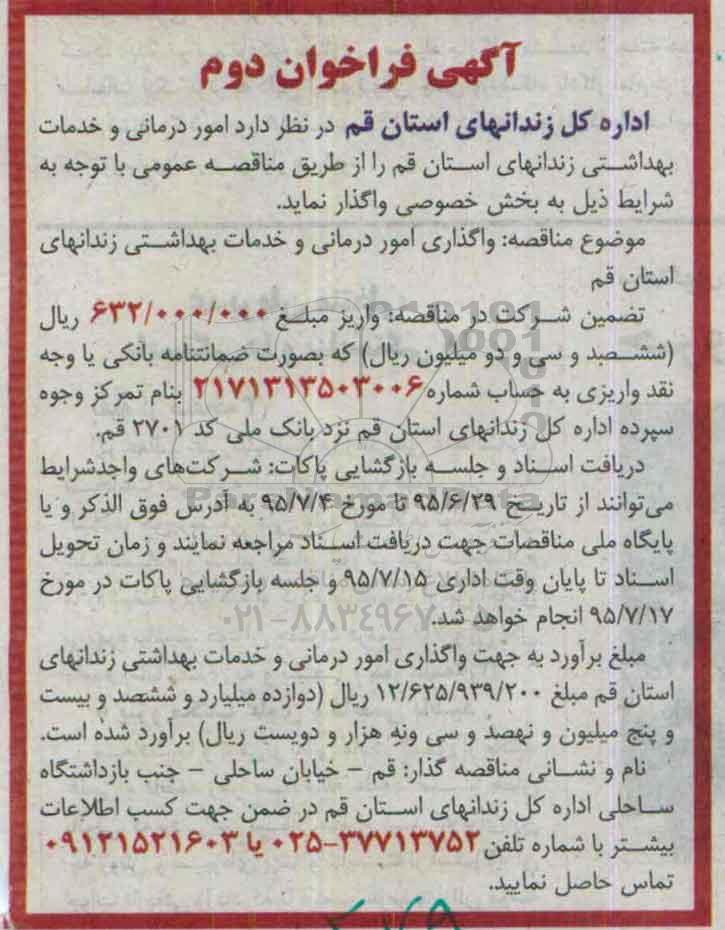 آگهی فراخوان دوم
اداره کل زندانهای استان قم در نظر دارد امور درمانی و خدمات
بهداشتی زندانهای استان قم را از طریق مناقصه عمومی با توجه به
شرایط ذیل به بخش خصوصی واگذار نماید.
موضوع مناقصه: واگذاری امور درمانی و خدمات بهداشتی زندانهای
استان قم
تضمین شرکت در مناقصه: واریز مبلغ ۶۳۲/۰۰۰/۰۰۰ ریال
(ششصبد و سی و دو میلیون ریال) که بصورت ضمانتنامه بانکی یا وجه
نقد واریزی به حساب شماره ۲۱۷۱۳۱۳۵۰۳۰۰۶ بنام تمرکز وجوه
سپرده اداره کل زندانهای استان قم نزد بانک ملی کد ۲۷۰۱ قم.
دریافت اسناد و جلسه بازگشایی پاکات: شرکت‌های واجدشرایط
می‌توانند از تاریخ ۹۵/۶/۲۹ تا مورخ ۹۵/۷/۴ به آدرس فوق الذکر و یا
پایگاه ملی مناقصات جهت دریافت اسناد مراجعه نمایند و زمان تحویل
اسناد تا پایان وقت اداری ۹۵/۷/۱۵ و جلسه بازگشایی پاکات در مورخ
۹۵/۷/۱۷ انجام خواهد شد.
۰۲۱-۸۸۳۴۹۶۷۰
مبلغ برآورد به جهت واگذاری امور درمانی و خدمات بهداشتی زندانهای
استان قم مبلغ ۱۲/۶۲۵/۹۳۹/۲۰۰ ریال (دوازده میلیارد و ششصد و بیست
و پنج میلیون و نهصد و سی ونه هزار و دویست ریال) برآورد شده است.
نام و نشانی مناقصه گذار: قم – خیابان ساحلی – جنب بازداشتگاه
ساحلی اداره کل زندانهای استان قم در ضمن جهت کسب اطلاعات
بیشتر با شماره تلفن ۳۷۷۱۳۷۵۲-۰۲۵ یا ۰۹۱۲۱۵۲۱۶۰۳
تماس حاصل نمایید.